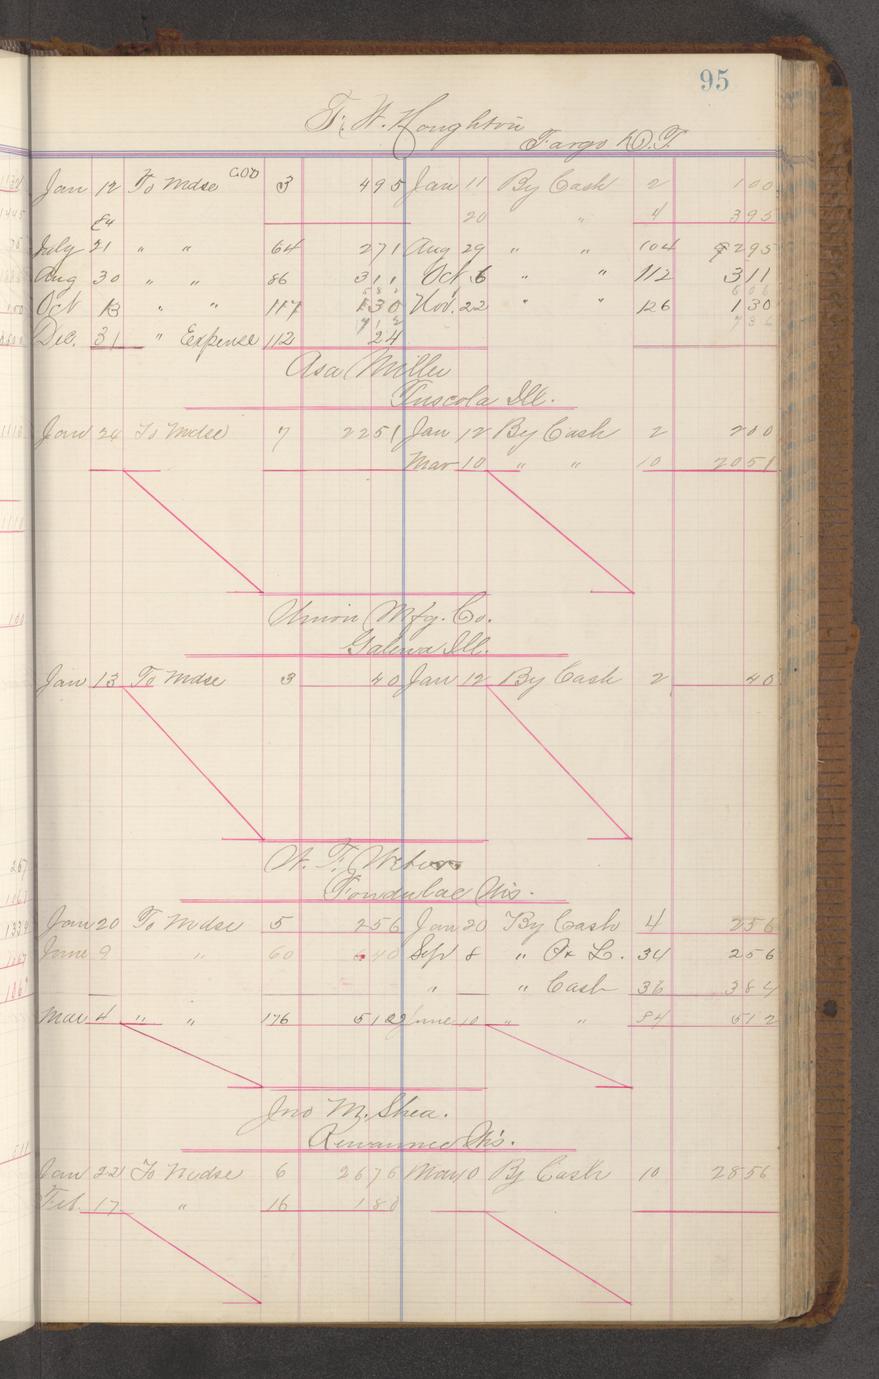 95
F. W. Houghton
Fargo D.T.
Jan 12 To Mdse COD 3 495 Jan 11 By Cash 2 100
84 20 " 4 395
July 21 " " 64 271 Aug 29 " " 104 295
Aug 30 " " 86 311 Oct 6 " " 112 311
Oct 13 " " 117 130 Nov. 22 " " 126 130
712 736
Dec. 31 " Expense 112 24
Asa Miller
Tuscola Ill.
Jan 24 To Mdse 7 2251 Jan 12 By Cash 2 200
Mar 10 " " 10 2051
Union Mfg. Co.
Galena Ill.
Jan 13 To Mdse 3 40 Jan 12 By Cash 2 40
Fondulac Wis.
Jan 20 To Mdse 5 256 Jan 20 By Cash 4 256
June 9 " 60 640 Sept 8 " 34 256
" " Cash 36 384
Mar 4 " " 176 512 June 10 " " 84 512
Jno M. Shea.
Kewaunee Wis.
Jan 22 To Mdse 6 2676 Mar 10 By Cash 10 2856
Feb. 17 " 16 180